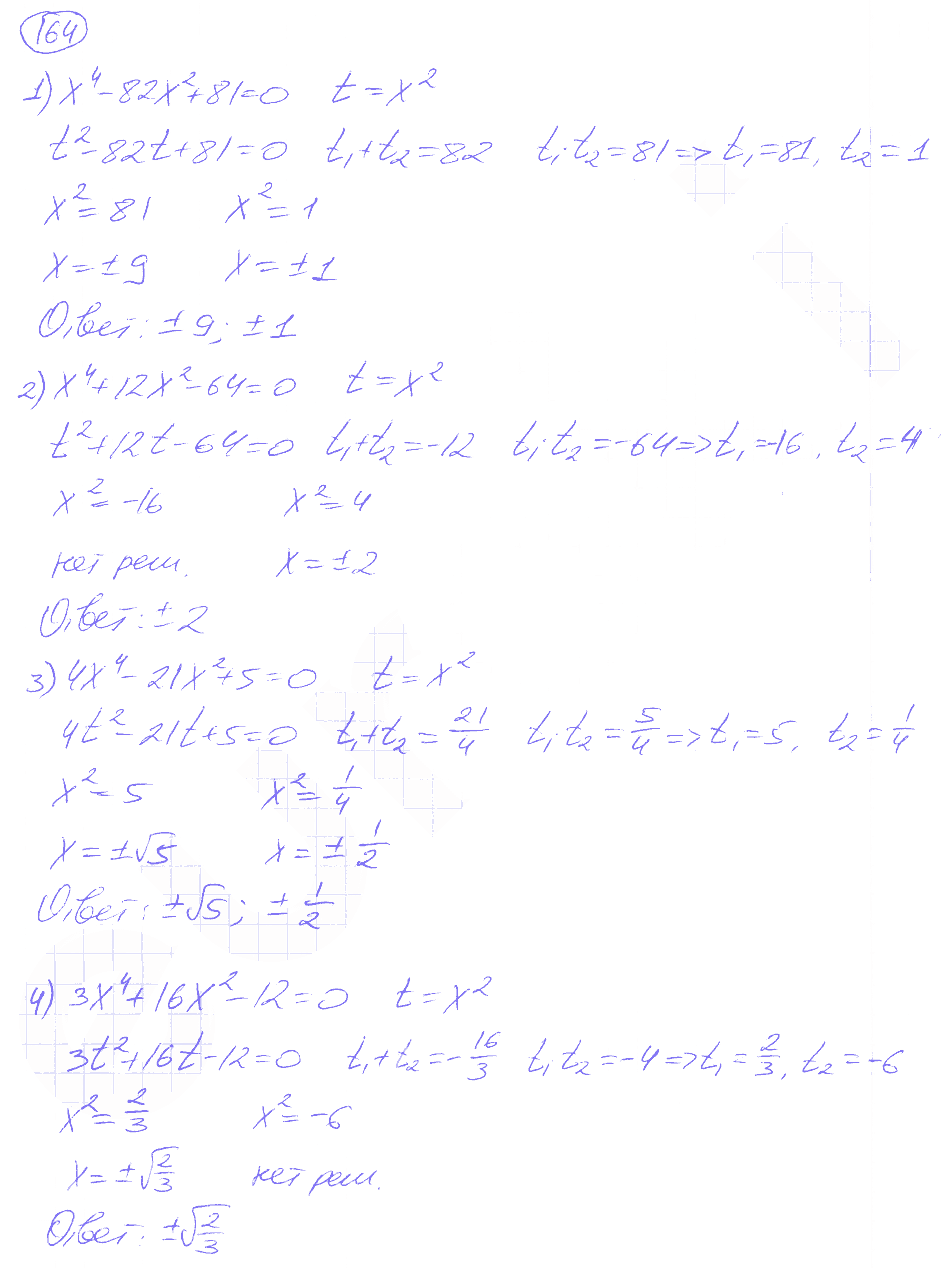 164
1) x⁴-82x²+81=0 t=x²
t²-82t+81=0 t₁+t₂=82 t₁·t₂=81=>t₁=81, t₂=1
x²=81 x²=1
x=±9 x=±1
Ответ: ±9; ±1
2) x⁴+12x²-64=0 t=x²
t²+12t-64=0 t₁+t₂=-12 t₁·t₂=-64=>t₁=-16, t₂=4
x²=-16 x²=4
нет реш. x=±2
Ответ: ±2
3) 4x⁴-21x²+5=0 t=x²
4t²-21t+5=0 t₁+t₂=21/4 t₁·t₂=5/4=>t₁=5, t₂=1/4
x²=5 x²=1/4
x=±√5 x=±1/2
Ответ: ±√5; ±1/2
4) 3x⁴+16x²-12=0 t=x²
3t²+16t-12=0 t₁+t₂=-16/3 t₁t₂=-4=>t₁=2/3, t₂=-6
x²=2/3 x²=-6
x=±√(2/3) нет реш.
Ответ: ±√(2/3)